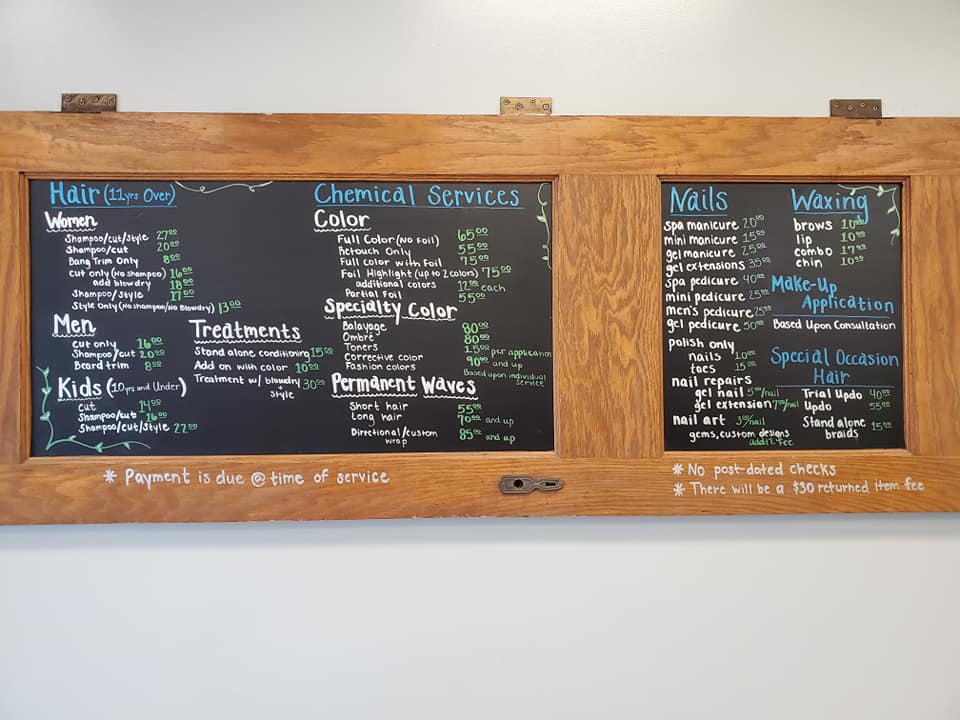 Hair (11yrs Over)
Women
Shampoo/cut/style 27⁰⁰
Shampoo/cut 20⁰⁰
Bang Trim Only 8⁰⁰
cut only (No shampoo) 16⁰⁰
add blowdry 18⁰⁰
Shampoo/Style 17⁰⁰
Style Only (No Shampoo/No Blowdry) 13⁰⁰
Men
cut only 16⁰⁰
Shampoo/cut 20⁰⁰
Beard trim 8⁰⁰
Kids (10yrs and Under)
Cut 14⁰⁰
Shampoo/cut 16⁰⁰
Shampoo/Cut/Style 22⁰⁰
Treatments
Stand alone conditioning 15⁰⁰
Add on with color 10⁰⁰
Treatment w/ blowdry + style 30⁰⁰
Chemical Services
Color
Full Color (No Foil) 65⁰⁰
Retouch Only 55⁰⁰
Full color with Foil 75⁰⁰
Foil Highlight (up to 2 colors) 75⁰⁰
additional colors 12⁰⁰ each
Partial Foil 55⁰⁰
Specialty Color
Balayage 80⁰⁰
Ombre 80⁰⁰
Toners 15⁰⁰ per application
Corrective color 90⁰⁰ and up
Fashion colors Based upon individual service
Permanent Waves
Short hair 55⁰⁰
Long hair 70⁰⁰ and up
Directional/custom wrap 85⁰⁰ and up
Nails
spa manicure 20⁰⁰
mini manicure 15⁰⁰
gel manicure 25⁰⁰
gel extensions 35⁰⁰
spa pedicure 40⁰⁰
mini pedicure 25⁰⁰
men's pedicure 25⁰⁰
gel pedicure 50⁰⁰
polish only
nails 10⁰⁰
toes 15⁰⁰
nail repairs
gel nail 5⁰⁰/nail
gel extension 7⁰⁰/nail
nail art 3⁰⁰/nail
gems, custom designs
addtl. fee
Waxing
brows 10⁰⁰
lip 10⁰⁰
combo 17⁰⁰
chin 10⁰⁰
Make-Up
Application
Based Upon Consultation
Special Occasion
Hair
Trial Updo 40⁰⁰
Updo 55⁰⁰
Stand alone braids 15⁰⁰
* Payment is due @ time of service
* No post-dated checks
* There will be a $30 returned item fee